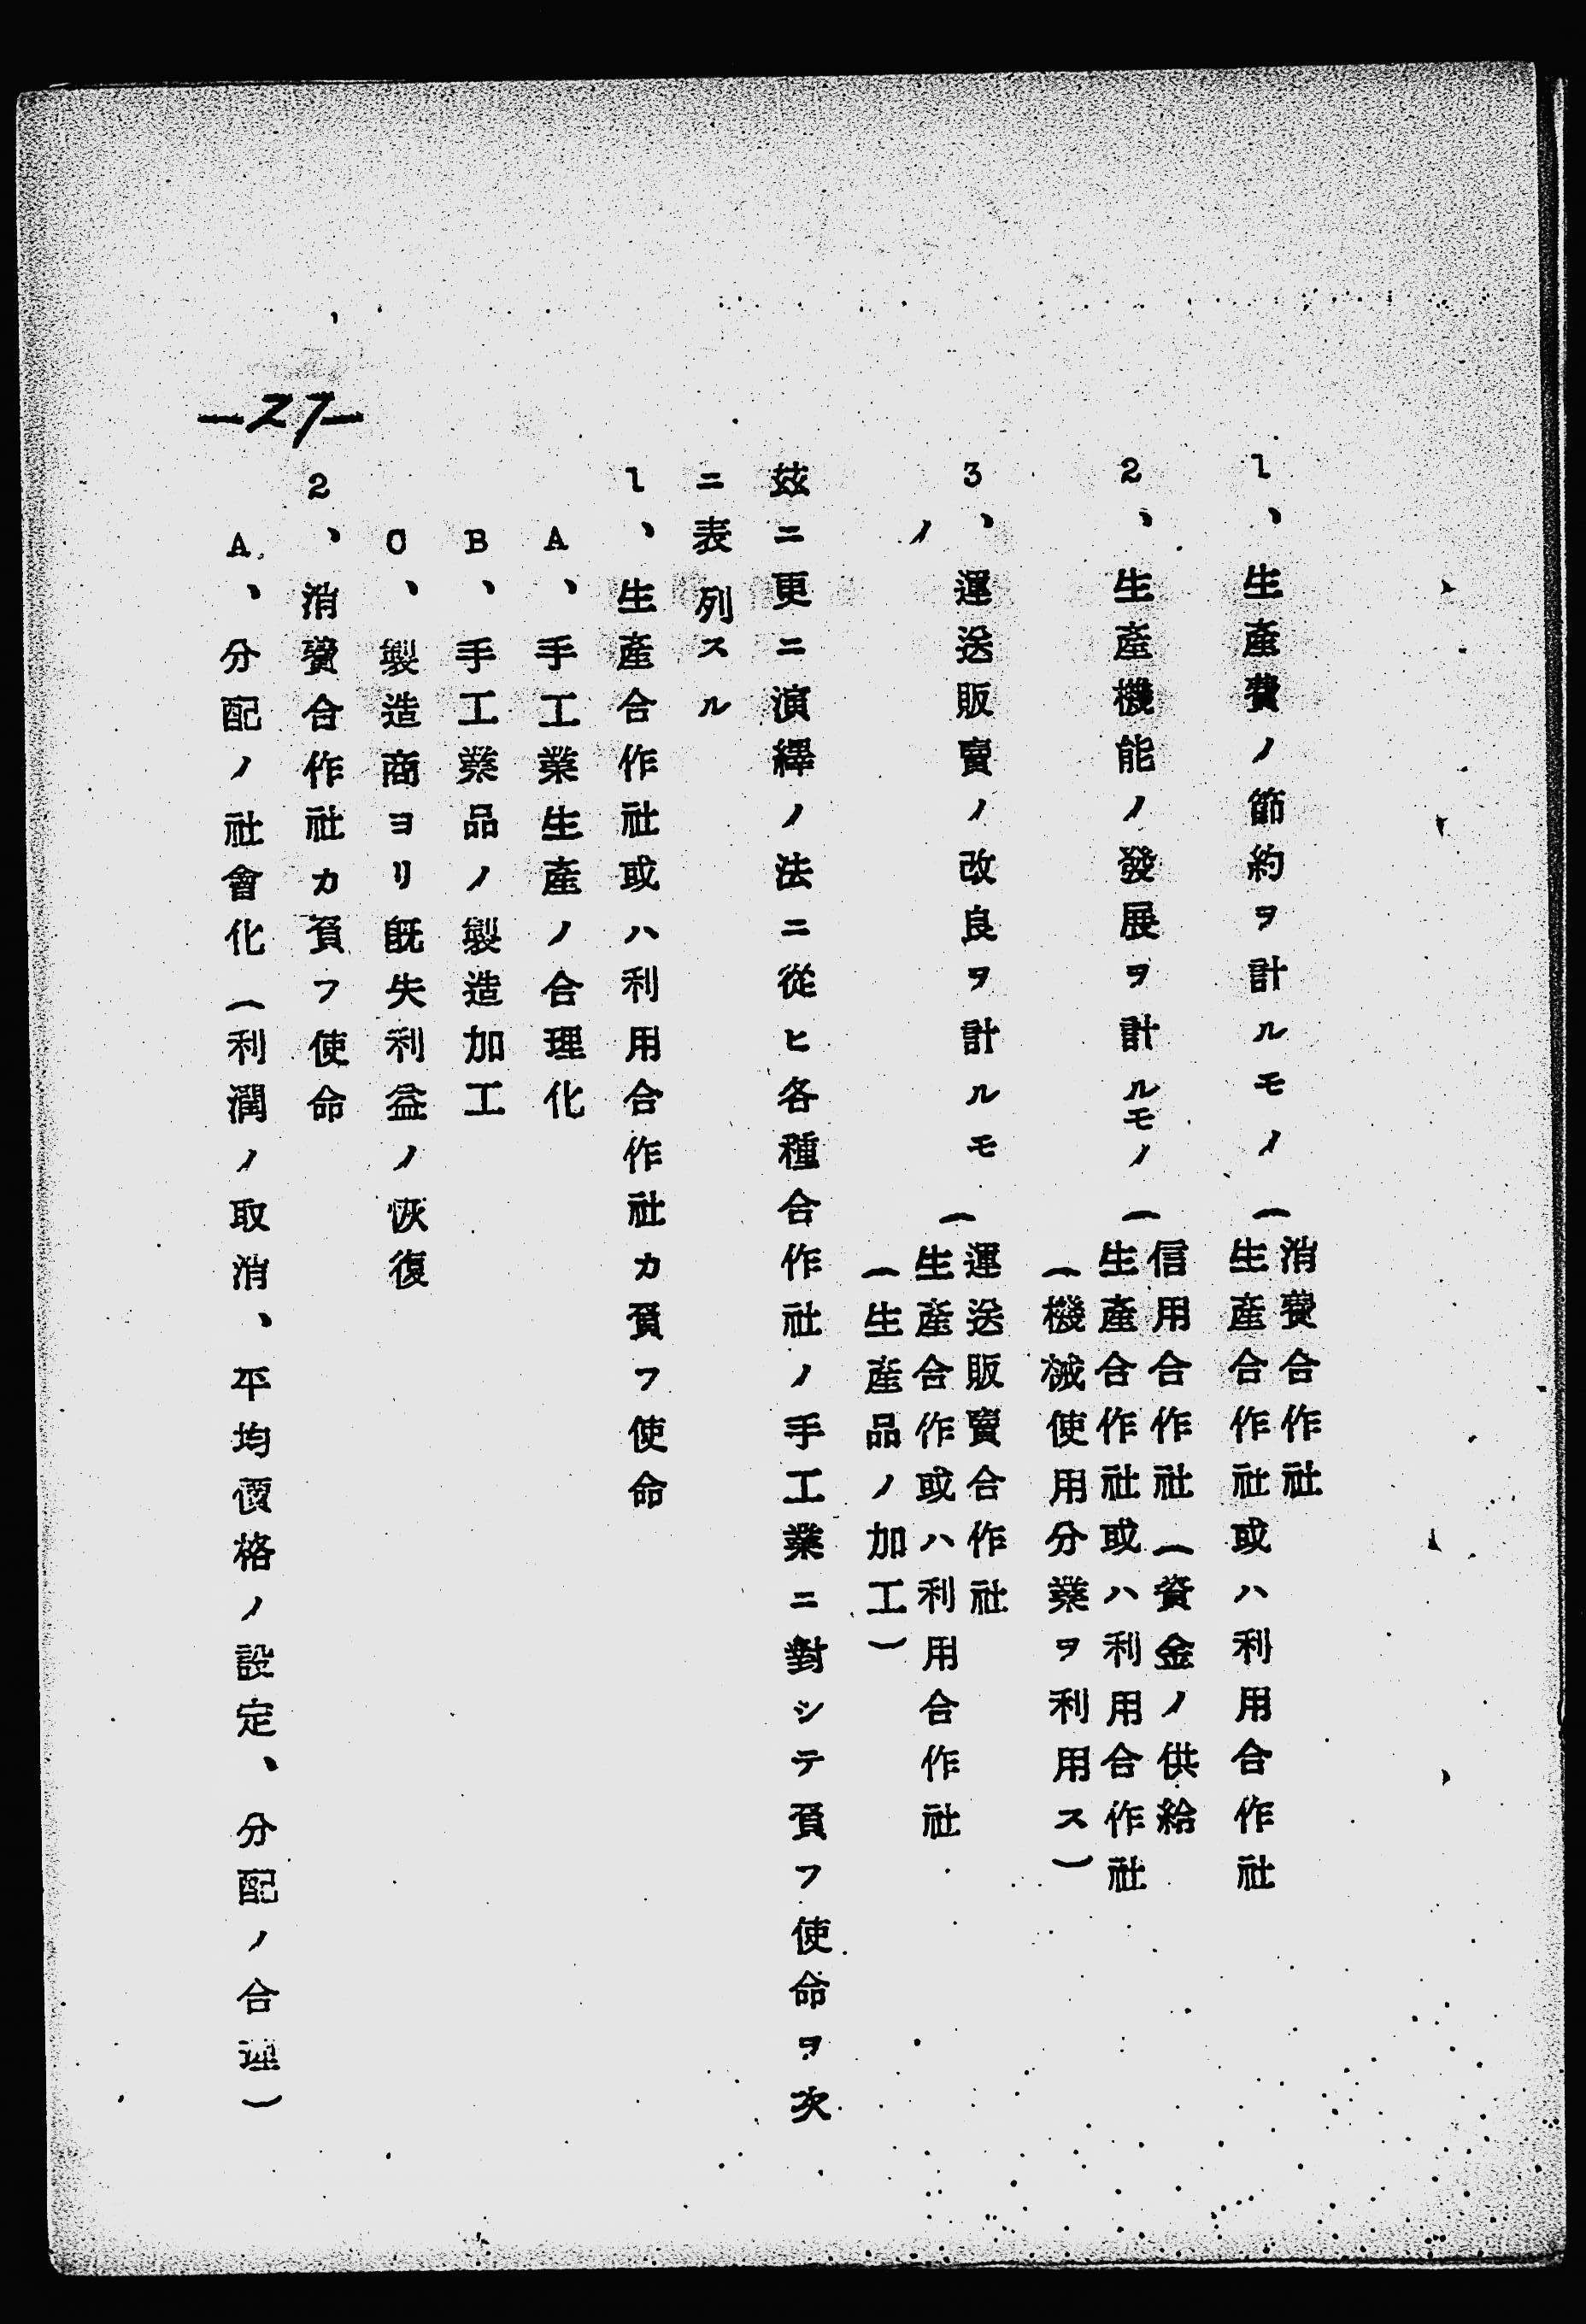 1、生產費ノ節約ヲ計ルモノ(
消費合作社
生產合作社或ハ利用合作社
2、生產機能ノ發展ヲ計ルモノ(
信用合作社(資金ノ供給
生產合作社或ハ利用合作社
(機械使用分業ヲ利用ス)
3、運送販賣ノ改良ヲ計ルモ(
ノ
運送販賣合作社
生產合作或ハ利用合作社
(生產品ノ加工)
茲ニ更ニ演繹ノ法ニ從ヒ各種合作社ノ手工業ニ對シテ負フ使命ヲ次
ニ表列スル
1、生產合作社或ハ利用合作社カ負フ使命
A、手工業生產ノ合理化
B、手工業品ノ製造加工
C、製造商ヨリ既失利益ノ恢復
2、消費合作社カ負フ使命
A、分配ノ社會化(利潤ノ取消、平均價格ノ設定、分配ノ合理)
—27—